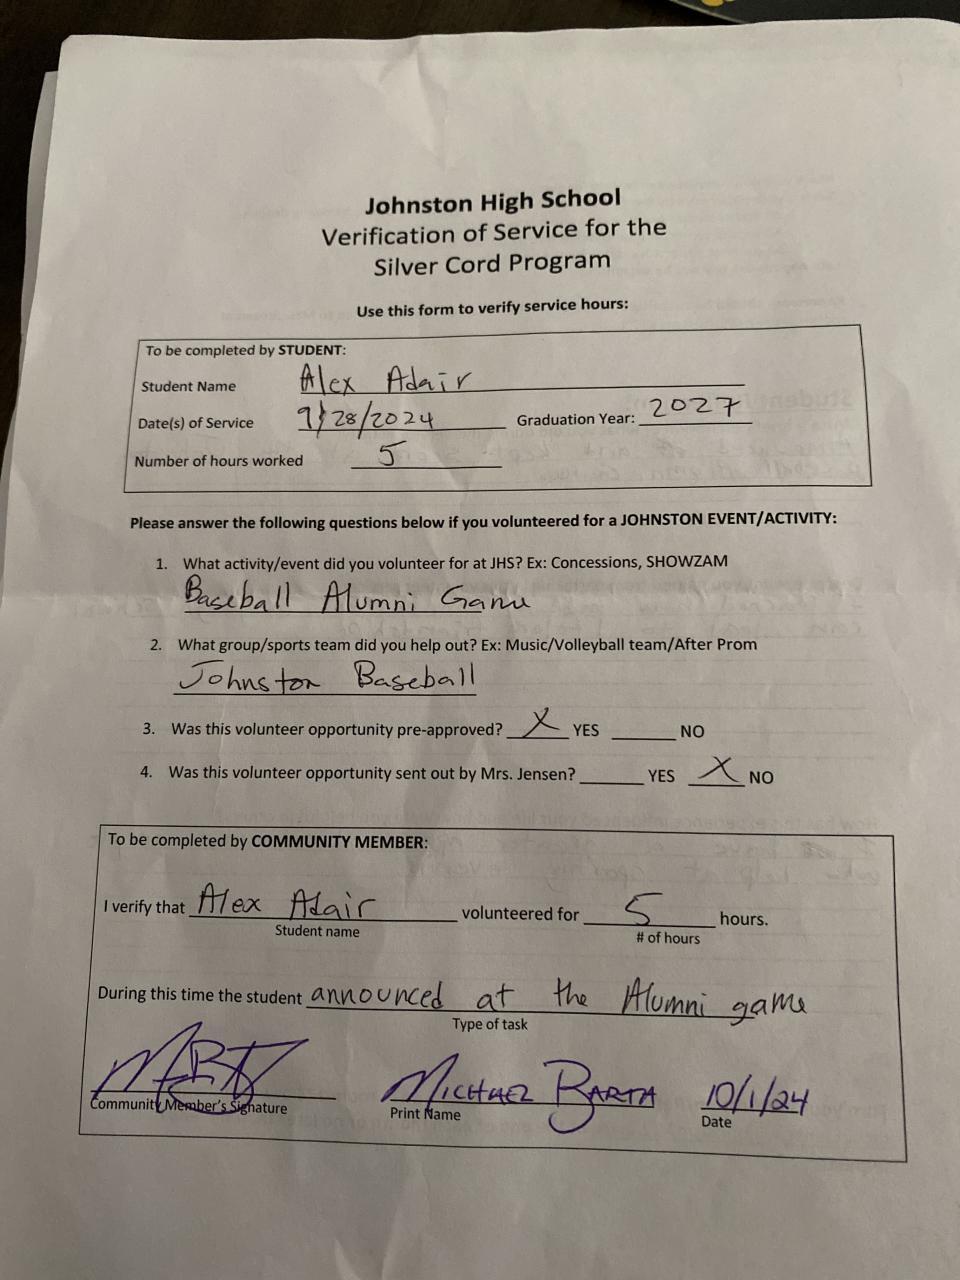 Johnston High School
Verification of Service for the
Silver Cord Program
Use this form to verify service hours:
To be completed by STUDENT:
Student Name Alex Adair
Date(s) of Service 9/28/2024 Graduation Year: 2027
Number of hours worked 5
Please answer the following questions below if you volunteered for a JOHNSTON EVENT/ACTIVITY:
1. What activity/event did you volunteer for at JHS? Ex: Concessions, SHOWZAM
Baseball Alumni Game
2. What group/sports team did you help out? Ex: Music/Volleyball team/After Prom
Johnston Baseball
3. Was this volunteer opportunity pre-approved? X YES ______ NO
4. Was this volunteer opportunity sent out by Mrs. Jensen? ______ YES X NO
To be completed by COMMUNITY MEMBER:
I verify that Alex Adair volunteered for 5 hours.
Student name # of hours
During this time the student announced at the Alumni game
Type of task
MICHAEL BARTA 10/1/24
Community Member's Signature Print Name Date